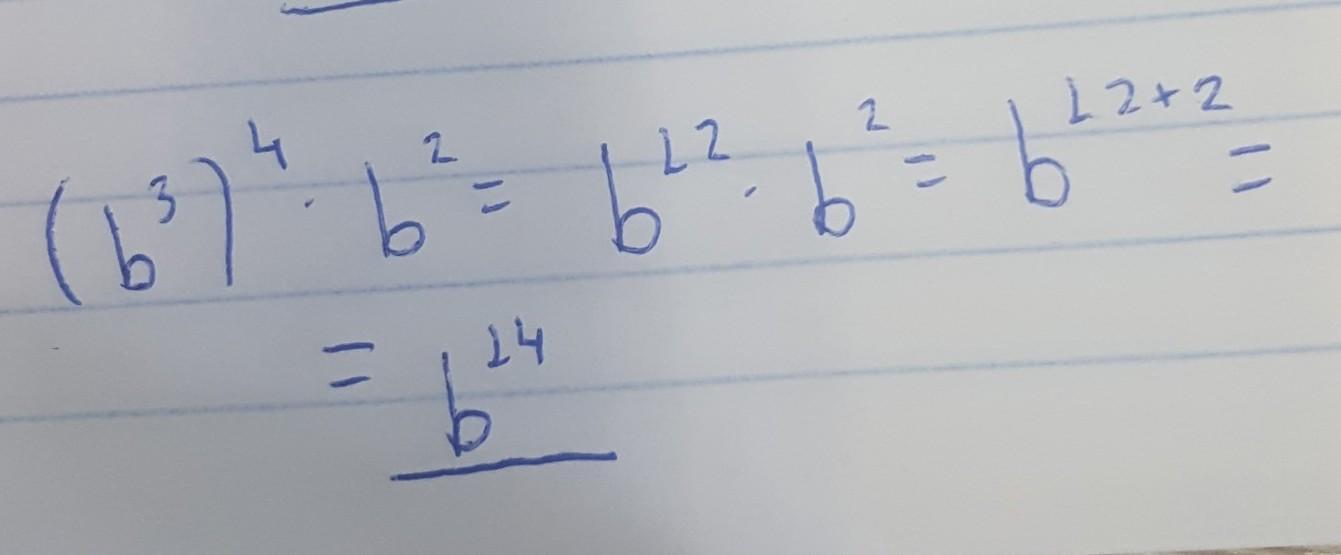 (b³)⁴ · b² = b¹² · b² = b¹²⁺² =
= b¹⁴